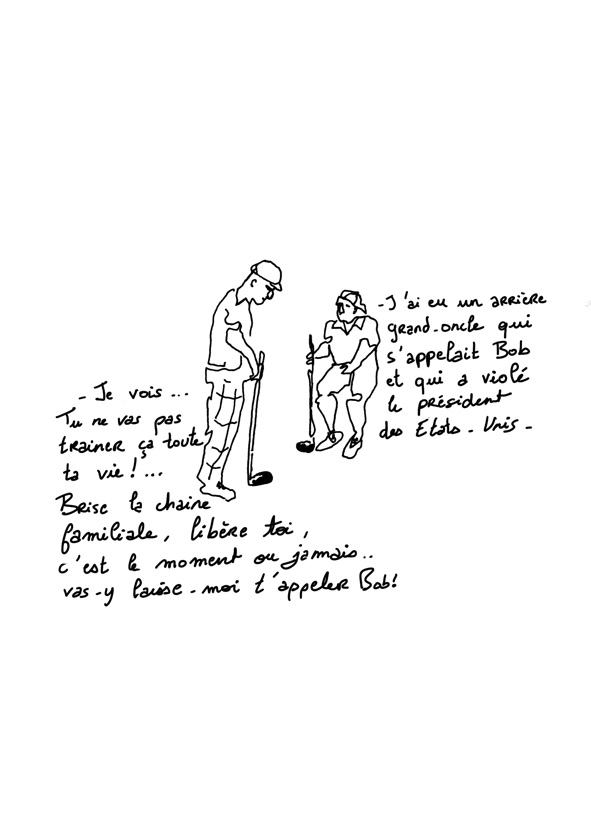 - J'ai eu un arrière
grand-oncle qui
s'appelait Bob
et qui a violé
le président
des Etats-Unis -
- Je vois ...
Tu ne vas pas
trainer ça toute
ta vie ! ...
Brise la chaine
familiale, libère toi,
c'est le moment ou jamais..
vas-y laisse-moi t'appeler Bob!